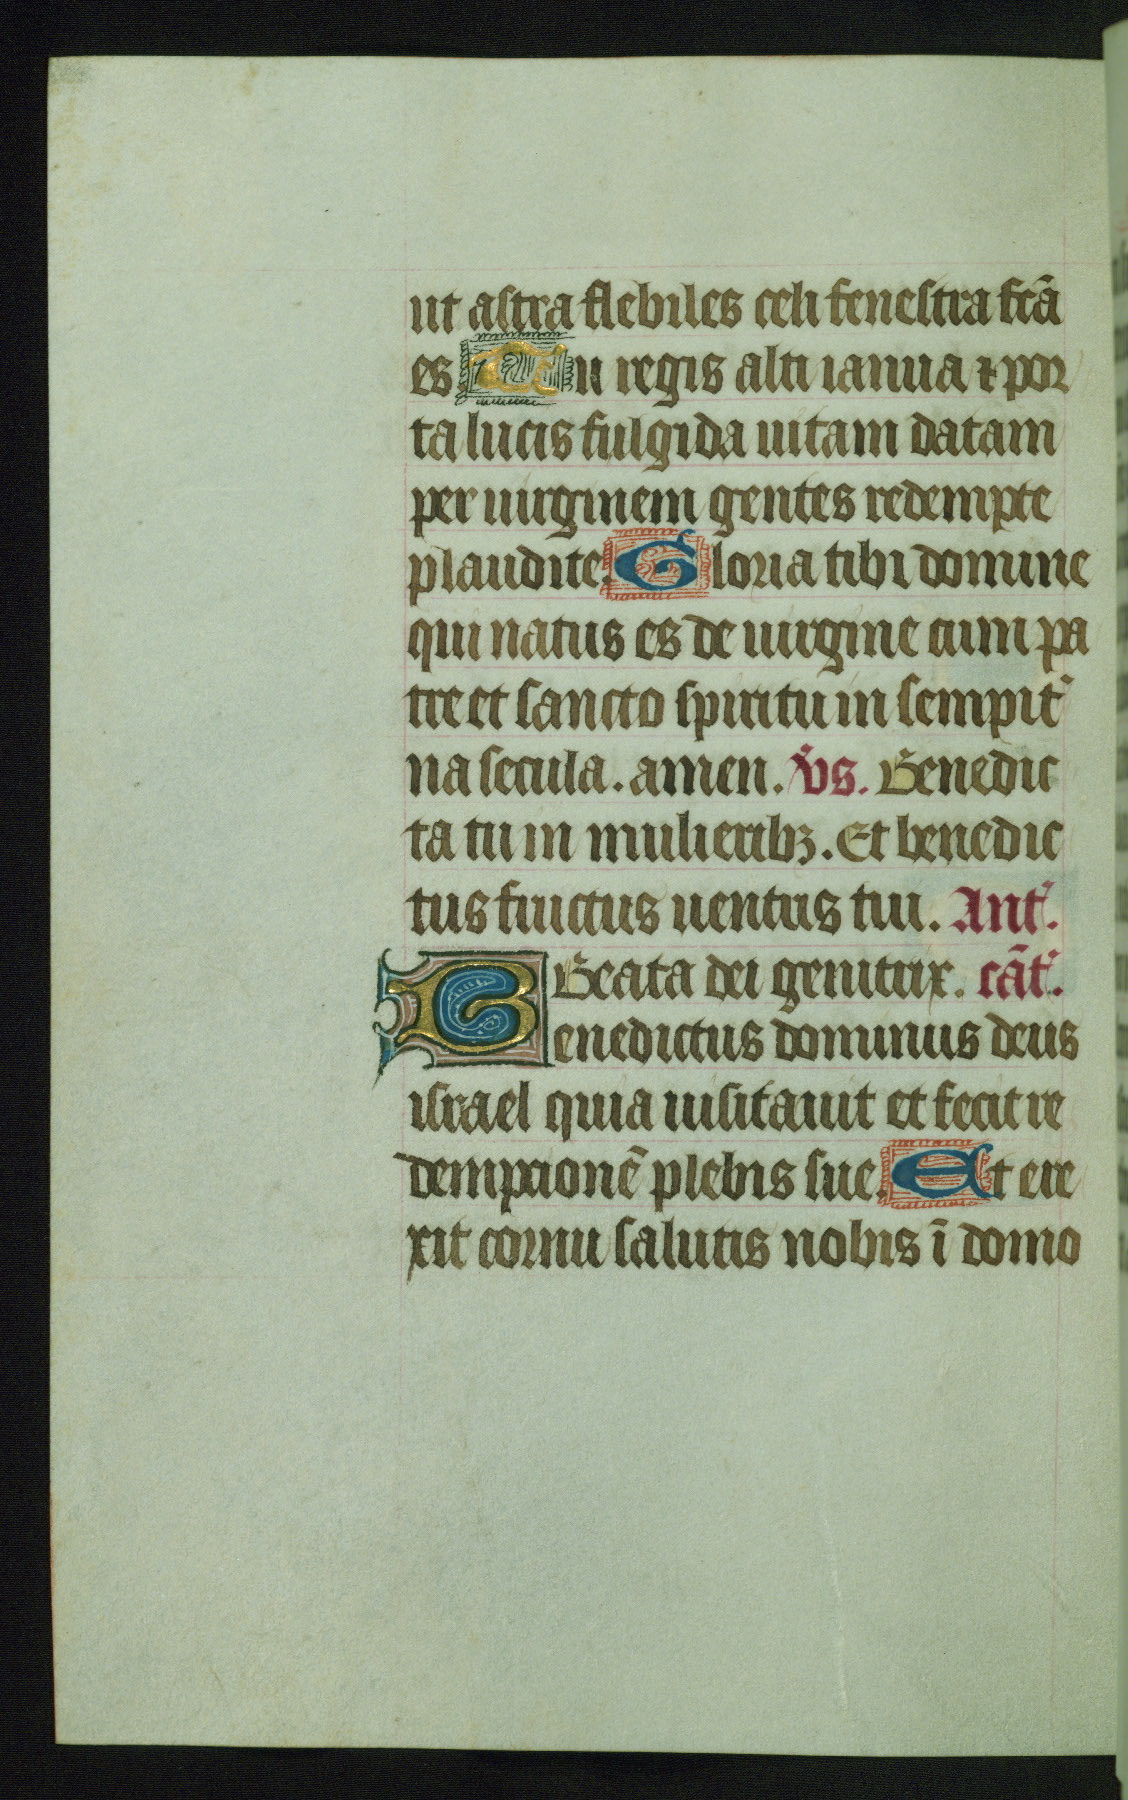 ut astra flebiles celi fenestra fc̄a
es Tu regis alti ianua ⁊ por
ta lucis fulgida uitam datam
per uirginem gentes redempte
plaudite. Gloria tibi domine
qui natus es de uirgine cum pa
tre et sancto spiritu in sempit᷑
na secula. amen. v̾s. Benedic
ta tu in mulieribꝫ. Et benedic
tus fructus uentris tui. Ant᷑.
Beata dei genitrix. cāt᷑.
Benedictus dominus deus
israel quia uisitauit et fecit re
dempcionē plebis sue. Et ere
xit cornu salutis nobis ī domo